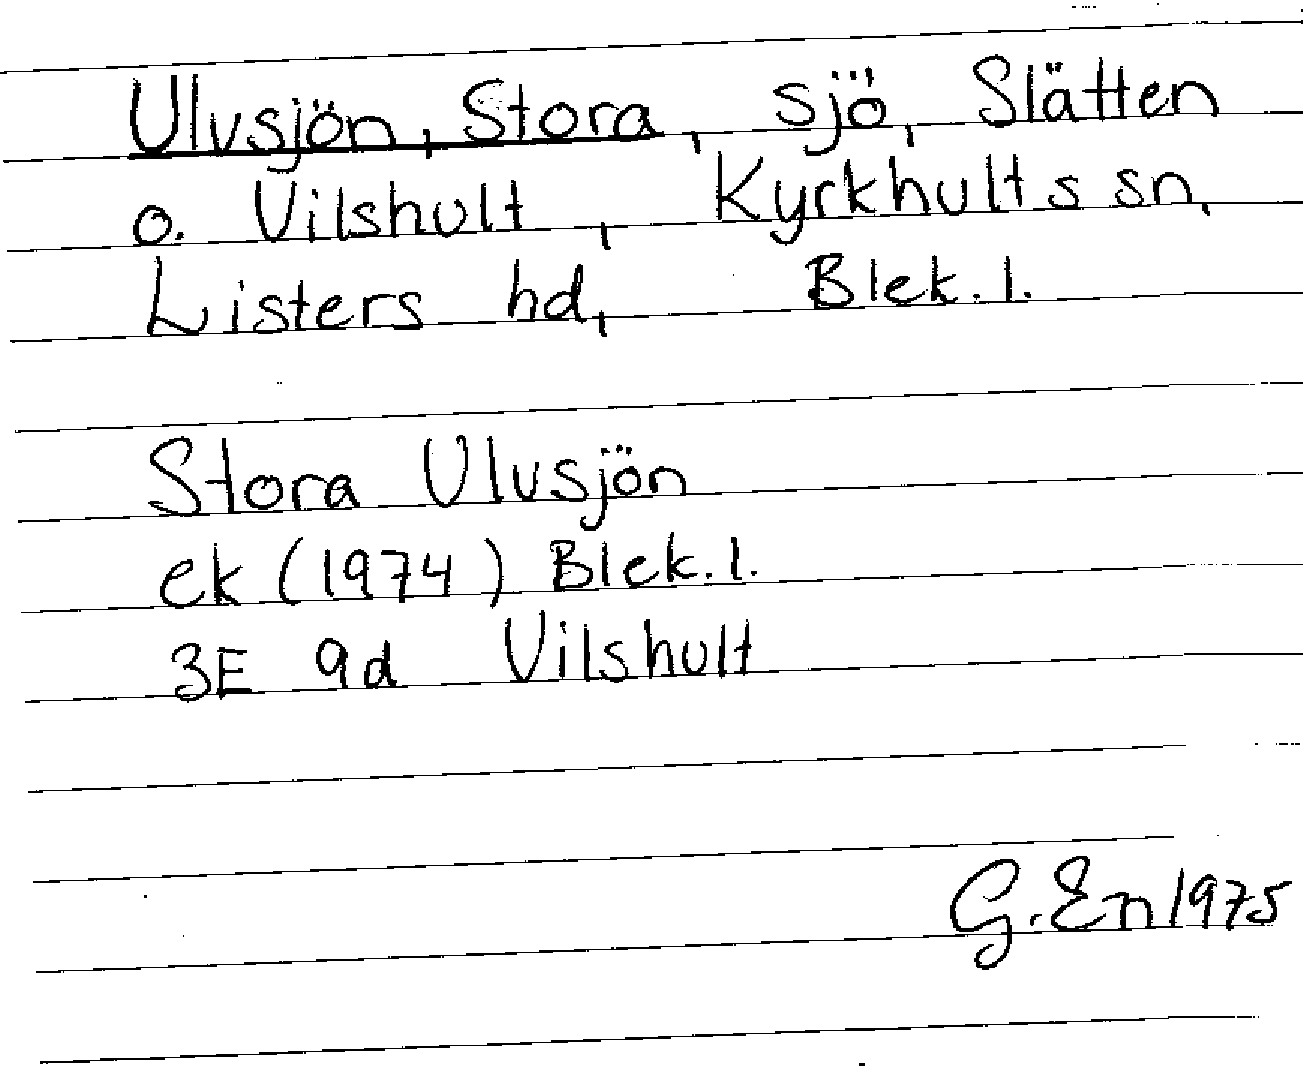 Ulvsjön, Stora, sjö, Slätten
o. Vilshult, Kyrkhults sn,
Listers hd, Blek. l.
Stora Ulvsjön
ek (1974) Blek. l.
3E 9d Vilshult
G. En 1975